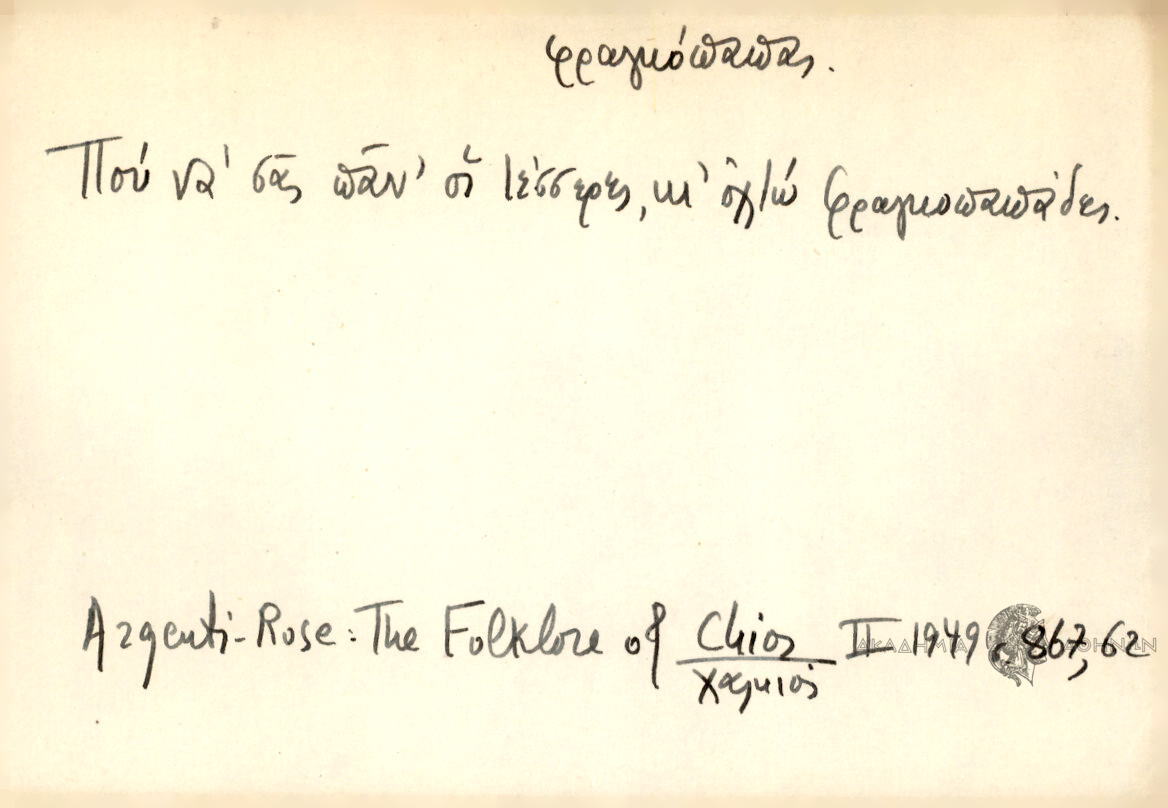 φραγκόπαπας.
Ποὺ νά' σᾶς πᾶν' οἱ τέσσερες, κι' ὀχτώ φραγκοπαπάδες.
Argenti-Rose: The Folklore of Chios II 1949 σ. 867, 62
Χαλκιός
ΑΚΑΔΗΜΙΑ ΑΘΗΝΩΝ